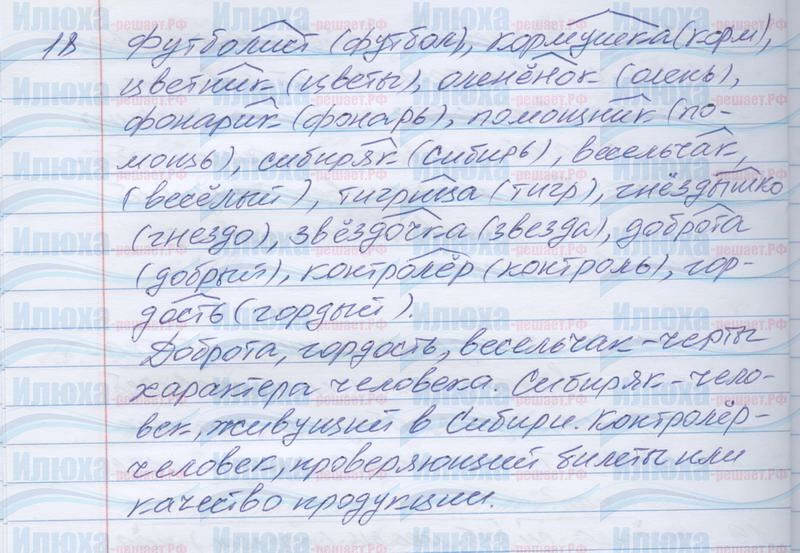 18 Футболист (футбол), кормушка (корм),
цветник (цветы), оленёнок (олень),
фонарик (фонарь), помощник (по-
мощь), сибиряк (Сибирь), весельчак,
(весёлый), тигрица (тигр), гнёздышко
(гнездо), звёздочка (звезда), доброта
(добрый), контролёр (контроль), гор-
дость (гордый).
Доброта, гордость, весельчак – черты
характера человека. Сибиряк – чело-
век, живущий в Сибири. Контролёр –
человек, проверяющий билеты или
качество продукции.